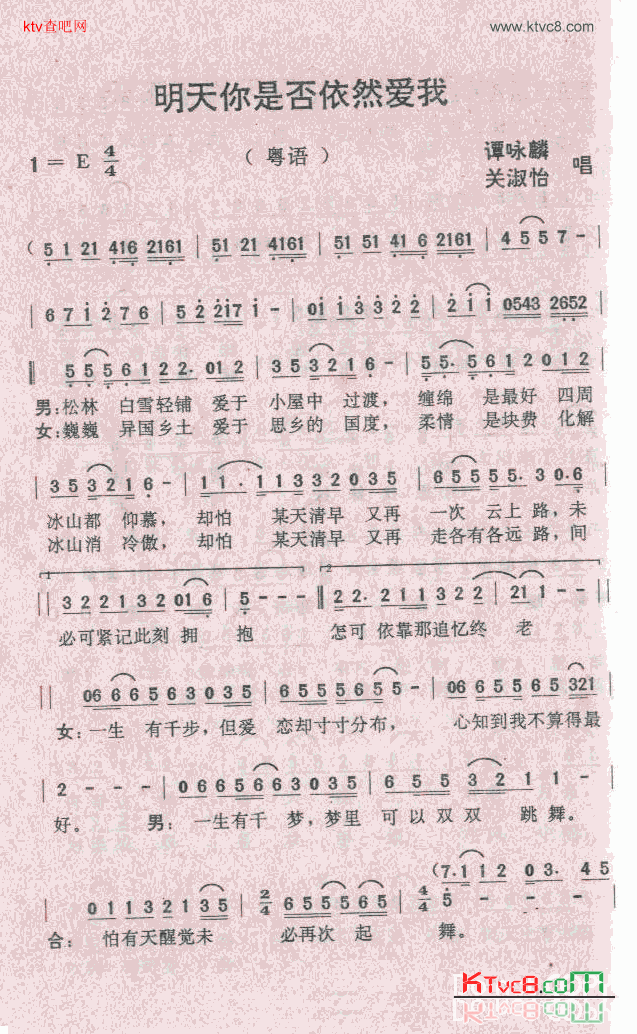 ktv查吧网 www.ktvc8.com
明天你是否依然爱我
1 = E 4/4 （粤语） 谭咏麟
关淑怡 唱
( 5 1 21 416 2161 | 51 21 4161 | 51 51 41 6 2161 | 4 5 5 7 - |
| 6 7 1 2 7 6 | 5 2 217 1 - | 01 1 3 3 2 2 | 2 1 1 0543 2652 |
‖ 5 5 5 6 1 2 2· 01 2 | 3 5 3 2 1 6 - | 5 5· 5 6 1 2 0 1 2 |
男：松林 白雪轻铺 爱于 小屋中 过渡， 缠绵 是最好 四周
女：巍巍 异国乡土 爱于 思乡的 国度， 柔情 是块费 化解
| 3 5 3 2 1 6 - | 1 1 · 1 1 3 3 2 0 3 5 | 6 5 5 5 5· 3 0·6 |
冰山都 仰慕， 却怕 某天清早 又再 一次 云上路，未
冰山消 冷傲， 却怕 某天清早 又再 走各有各远路，间
1 2
‖ 3 2 2 1 3 2 01 6 | 5 - - - ‖ 2 2· 2 1 1 3 2 2 | 21 1 - - |
必可紧记此刻 拥 抱 怎可 依靠那追忆终 老
‖ 06 6 6 5 6 3 0 3 5 | 6 5 5 5 6 5 5 - | 06 6 5 5 6 5 321 |
女：一生 有千步，但爱 恋却寸寸分布， 心知到我不算得最
| 2 - - - | 0 6 6 5 6 6 3 0 3 5 | 6 5 5 3 2 1 1 - |
好。 男：一生有千 梦，梦里 可以双双 跳舞。
(7·1 1 2 0 3· 4 5
| 0 1 1 3 2 1 3 5 | 2/4 6 5 5 5 6 5 | 4/4 5 - - - |
合： 怕有天醒觉未 必再次 起 舞。
KTvc8.com